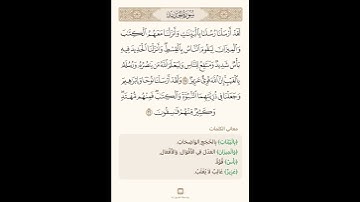 سُورَةُ الحَدِيدِ
لَقَدْ أَرْسَلْنَا رُسُلَنَا بِالْبَيِّنَاتِ وَأَنزَلْنَا مَعَهُمُ الْكِتَابَ
وَالْمِيزَانَ لِيَقُومَ النَّاسُ بِالْقِسْطِ وَأَنزَلْنَا الْحَدِيدَ فِيهِ
بَأْسٌ شَدِيدٌ وَمَنَافِعُ لِلنَّاسِ وَلِيَعْلَمَ اللَّهُ مَن يَنصُرُهُ وَرُسُلَهُ
بِالْغَيْبِ إِنَّ اللَّهَ قَوِيٌّ عَزِيزٌ ۝ وَلَقَدْ أَرْسَلْنَا نُوحًا وَإِبْرَاهِيمَ
وَجَعَلْنَا فِي ذُرِّيَّتِهِمَا النُّبُوَّةَ وَالْكِتَابَ فَمِنْهُم مُّهْتَدٍ
وَكَثِيرٌ مِّنْهُمْ فَاسِقُونَ
معاني الكلمات
﴿بِالْبَيِّنَاتِ﴾ بِالْحُجَجِ الْوَاضِحَاتِ.
﴿وَالْمِيزَانَ﴾ الْعَدْلَ فِي الْأَقْوَالِ، وَالْأَفْعَالِ.
﴿بَأْسٌ﴾ قُوَّةٌ.
﴿عَزِيزٌ﴾ غَالِبٌ لَا يُغْلَبُ.